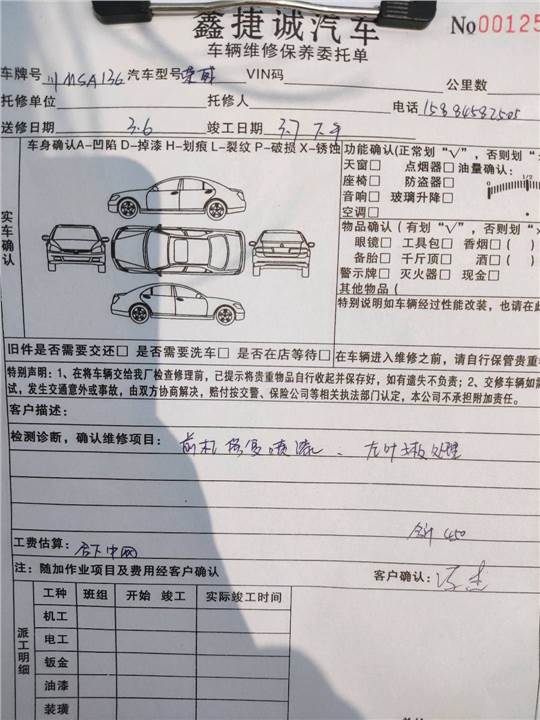 鑫捷诚汽车
车辆维修保养委托单 No00125
车牌号 川MSA136 汽车型号 荣威 VIN码 公里数
托修单位 托修人 电话 15884582505
送修日期 3.6 竣工日期 3.7 下午
车身确认A-凹陷 D-掉漆 H-划痕 L-裂纹 P-破损 X-锈蚀
实车确认
功能确认(正常划“√”,否则划
天窗□ 点烟器□ 油量确认:
座椅□ 防盗器□
音响□ 玻璃升降□
空调□
0 1/2
物品确认(有划“√”,否则划
眼镜□ 工具包□ 香烟□( )
备胎□ 千斤顶□ 酒□( )
警示牌□ 灭火器□ 现金□
其他物品(
特别说明如车辆经过性能改装,也请在此
旧件是否需要交还□ 是否需要洗车□ 是否在店等待□
在车辆进入维修之前,请自行保管贵重
特别声明:1、在将车辆交给我厂检查修理前,已提示将贵重物品自行收起并保存好,如有遗失不负责;2、交修车辆如需
试,发生交通意外或事故,由双方协商解决,赔付按交警、保险公司等相关执法部门认定,本公司不承担附加责任。
客户描述:
检测诊断,确认维修项目: 前机 修复喷漆、左叶子板处理
合计 450
工费估算: 下中网
注:随加作业项目及费用经客户确认 客户确认:
派工明细
工种 班组 开始 竣工 实际竣工时间
机工
电工
钣金
油漆
装璜